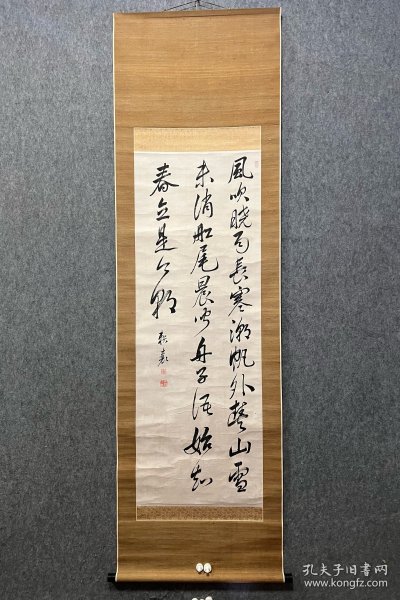 風吹晓雨長寒潮帆外山雪
未消船尾晨聞舟子語始知
春立是今朝
孔夫子旧书网
www.kongfz.com